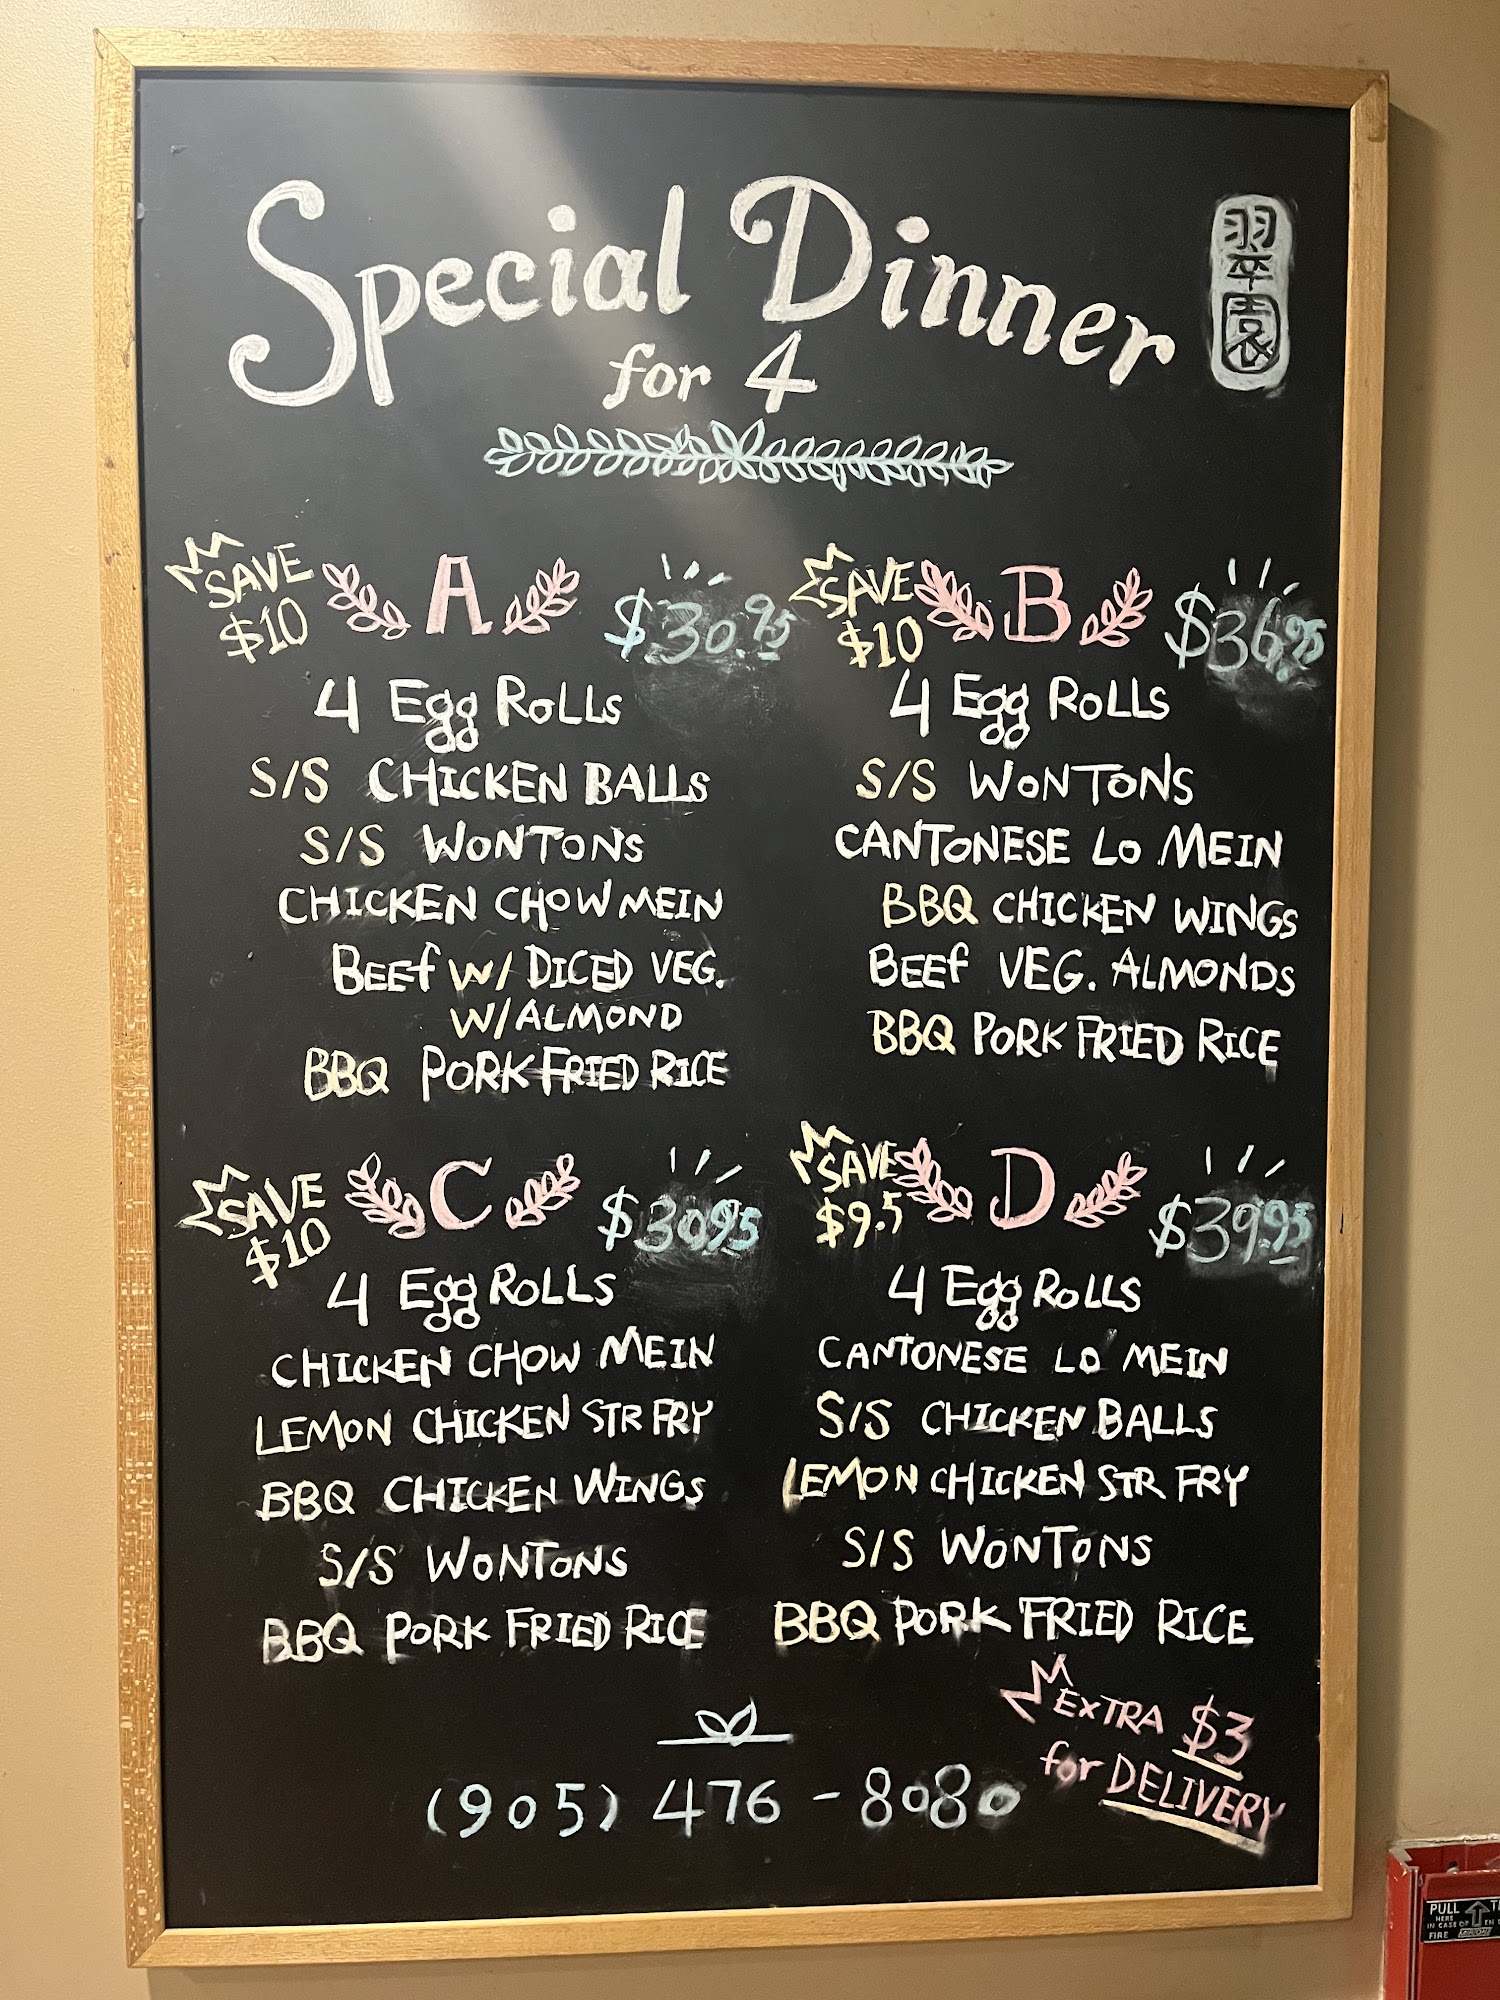 Special Dinner
for 4
翠園
SAVE
$10
A
$30.95
4 Egg Rolls
S/S CHICKEN BALLS
S/S WONTONS
CHICKEN CHOW MEIN
BEEf W/ DICED VEG.
W/ALMOND
BBQ PORK FRIED RICE
SAVE
$10
B
$36.95
4 Egg Rolls
S/S WONTONS
CANTONESE LO MEIN
BBQ CHICKEN WINGS
BEEf VEG. ALMONDS
BBQ PORK FRIED RICE
SAVE
$10
C
$30.95
4 Egg Rolls
CHICKEN CHOW MEIN
LEMON CHICKEN STR FRY
BBQ CHICKEN WINGS
S/S WONTONS
BBQ PORK FRIED RICE
SAVE
$9.5
D
$39.95
4 Egg Rolls
CANTONESE LO MEIN
S/S CHICKEN BALLS
LEMON CHICKEN STR FRY
S/S WONTONS
BBQ PORK FRIED RICE
EXTRA $3
for DELIVERY
(905) 476-8080
PULL
HERE
IN CASE OF
FIRE
EN